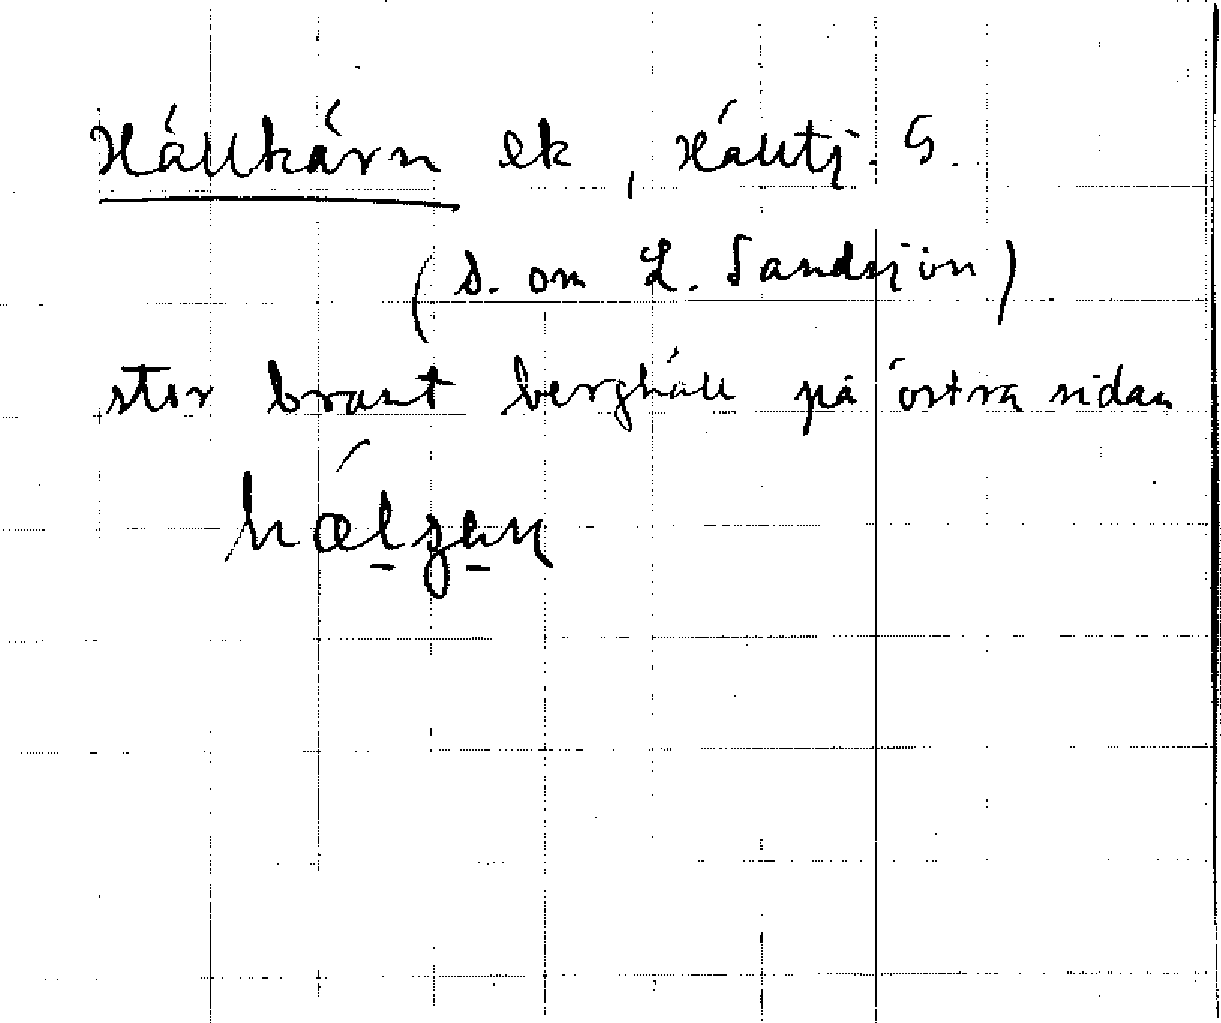 Hällkärn ek, Hälltj. G.
(S. om L. Sandsjön)
stor brant berghäll på östra sidan
hælʒan